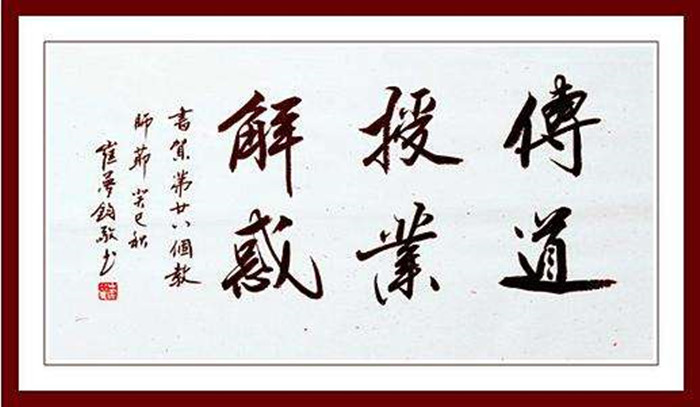 傳道
授業
解惑
書賀第廿八個教
師節 癸巳秋
崔夢鈞敬書